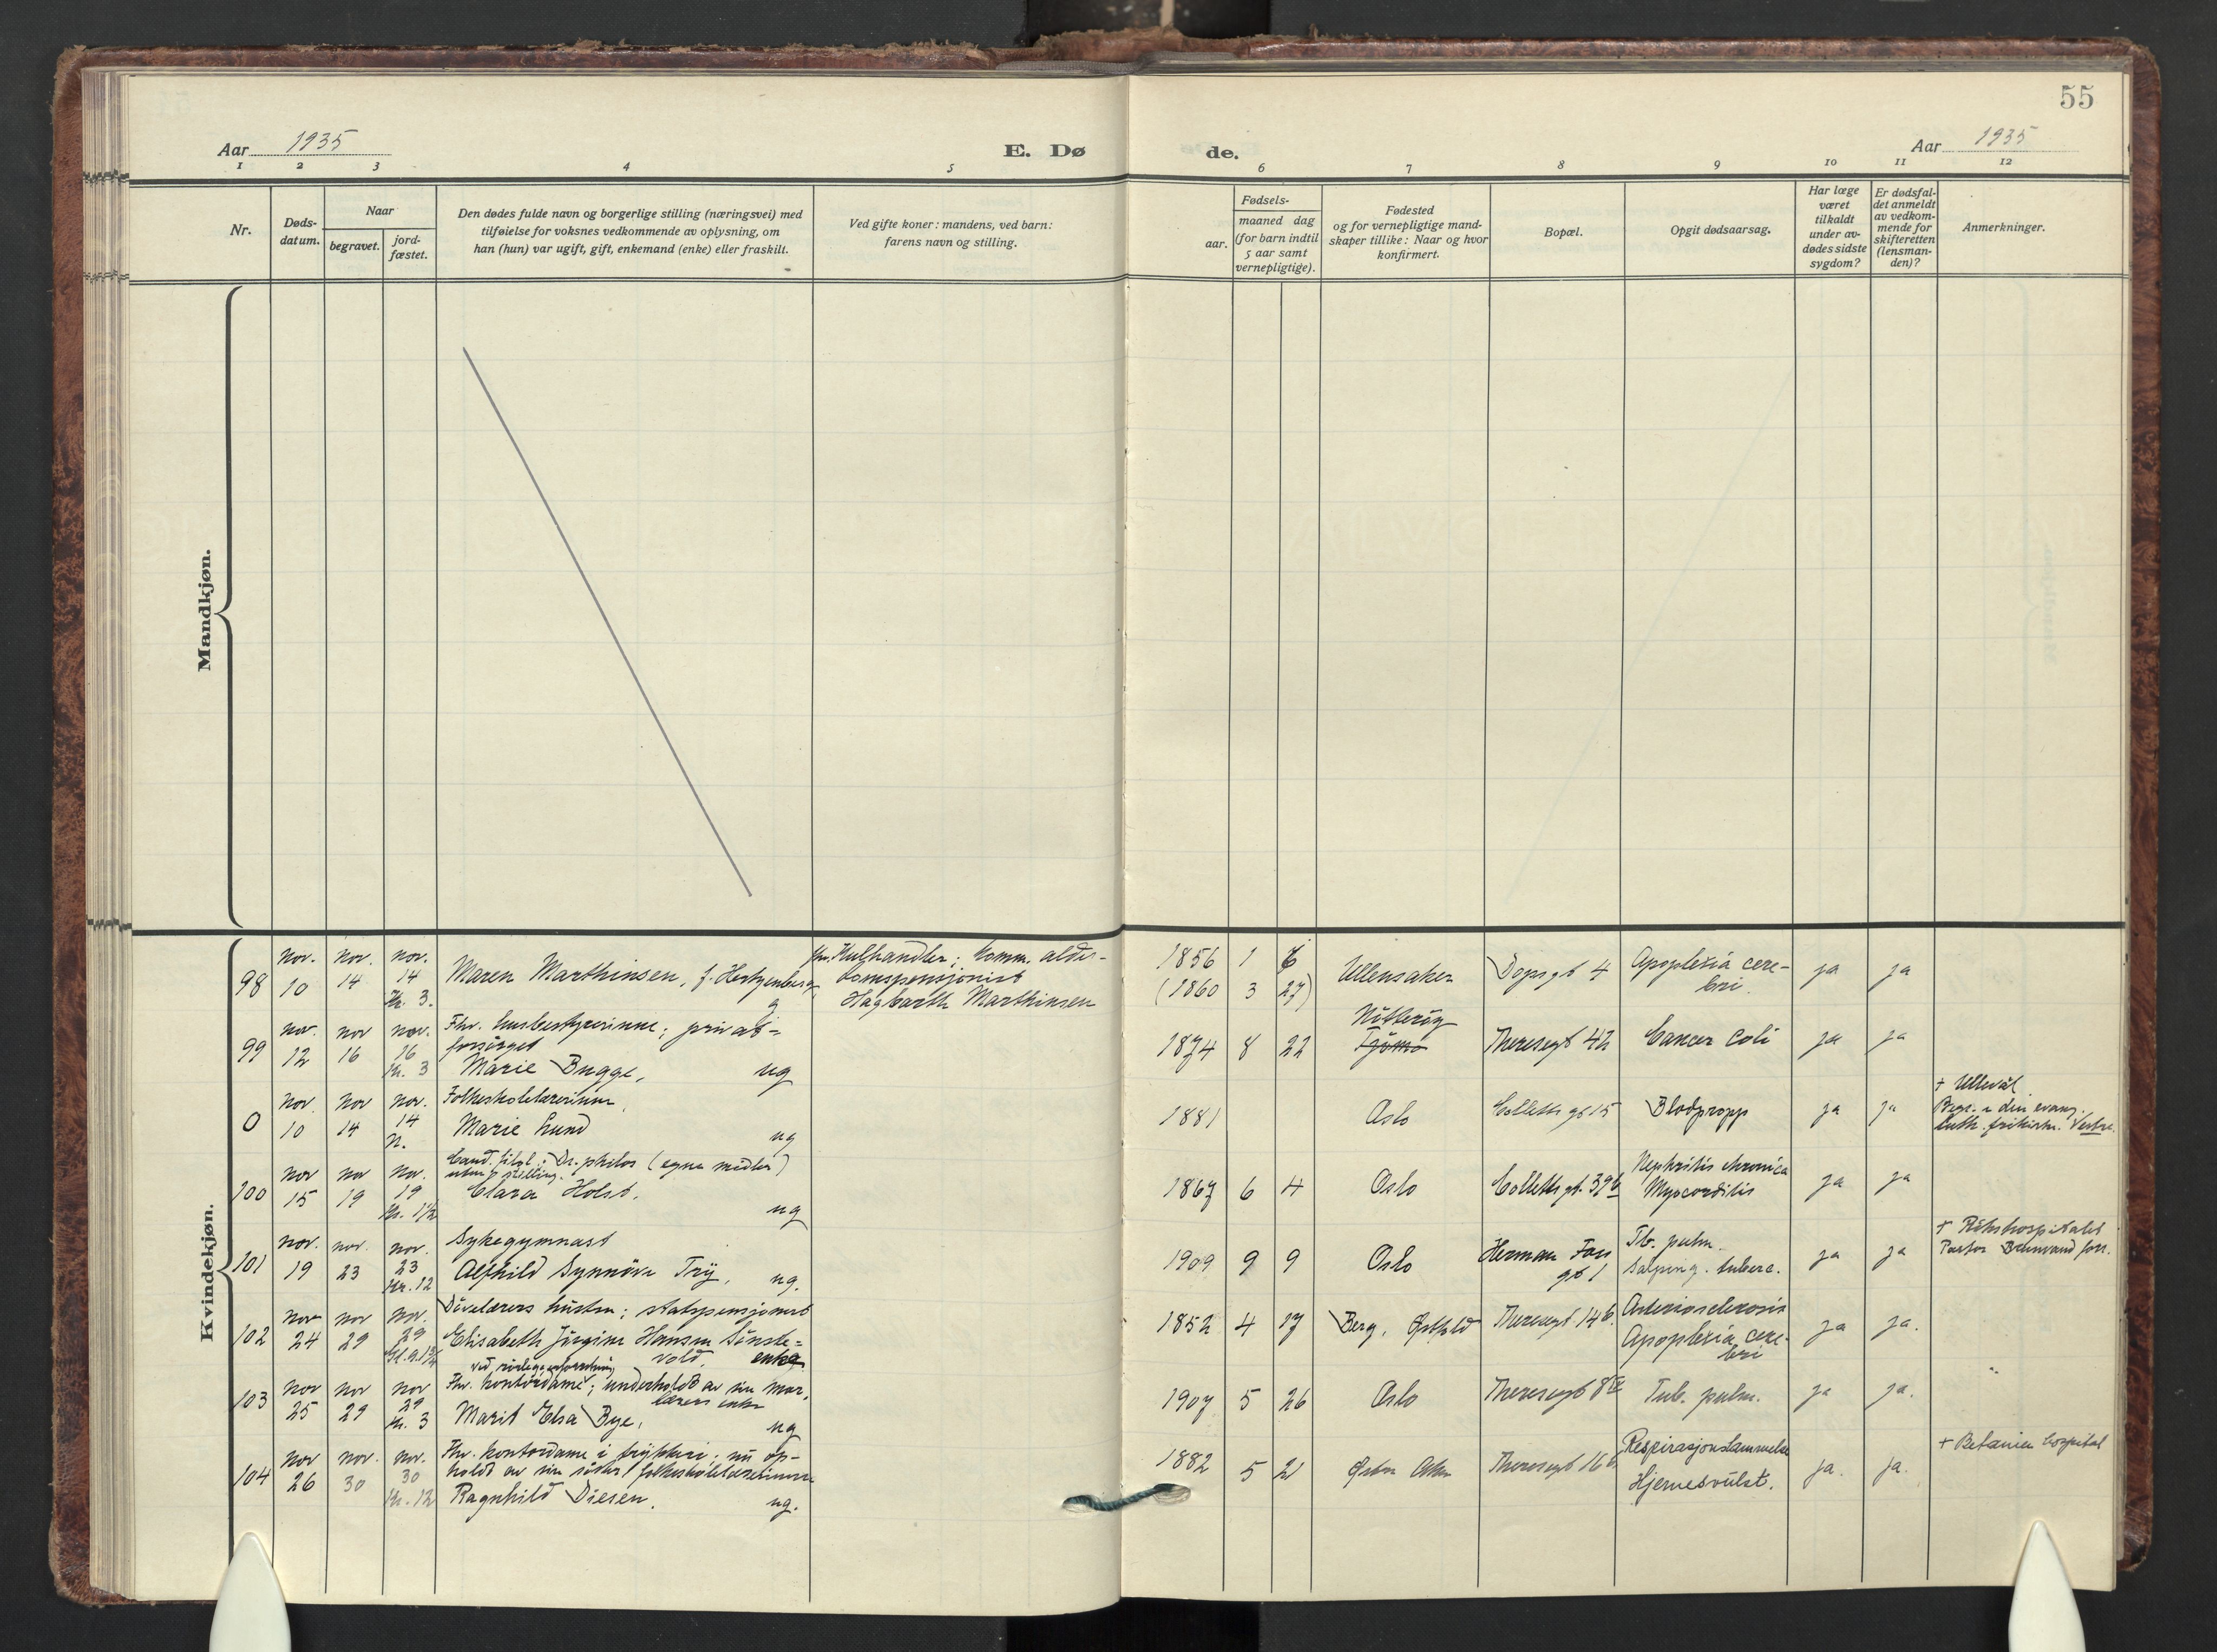 55
Aar 1935
E. Dø
de.
Aar 1935
1 2 3 4 5 6 7 8 9 10 11 12
Nr.
Døds-
datum.
Naar
begravet.
jord-
fæstet.
Den dødes fulde navn og borgerlige stilling (næringsvei) med
tilføielse for voksnes vedkommende av oplysning, om
han (hun) var ugift, gift, enkemand (enke) eller fraskilt.
Ved gifte koner: mandens, ved barn:
farens navn og stilling.
Fødsels-
aar.
maaned dag
(for barn indtil
5 aar samt
vernepligtige).
Fødested
og for vernepligtige mand-
skaper tillike: Naar og hvor
konfirmert.
Bopæl.
Opgit dødsaarsag.
Har læge
været
tilkaldt
under av-
dødes sidste
sygdom?
Er dødsfal-
det anmeldt
av vedkom-
mende for
skifteretten
(lensman-
den)?
Anmerkninger.
Mandkjøn.
Kvindekjøn.
98
Nov. 10
Nov. 14
Nov. 14
Kr. 3.
Maren Marthinsen, f. Hertzenberg
g
fhv. Kulhandler; komm. alders-
domspensjonist
Hagbarth Marthinsen
1856 1 6
(1860 3 27)
Ullensaker
Dopsgt 4
Apoplexia cere-
bri.
ja
ja
99
Nov. 12
Nov 16
Nov. 16
Kr. 3
Fhv. husbestyrerinne; privat-
forsörget
Marie Bugge,
ug
1874 8 22
Nötteröy
Tjömo
Theresesgt 42
Cancer Coli
ja
ja
0
Nov. 10
Nov 14
Nov. 14
n.
Folkeskolelærerinne,
Marie Lund
ug
1881
Oslo
Collettsgt 15
Blodpropp
ja
ja
+ Ullevål
Begr. a den evang.
luth. frikirke. Vestre.
100
Nov 15
Nov 19
Nov. 19
Kr. 1½
Cand. filol.; Dr. philos (egne midler)
uten stilling.
Clara Holst.
ug
1867 6 4
Oslo
Collettsgt. 39b
Nephritis chronica
Myocorditis
ja
ja
101
Nov. 19
Nov. 23
Nov. 23
Kr. 12
Sykegymnast
Alfhild Synnöve Try,
ug.
1909 9 9
Oslo
Herman Foss
gt 1
Tb. pulm.
Salping. tuberc.
ja
ja
+ Rikshospitalet
Pastor Brunvand forr.
102
Nov 24
Nov 29
Nov. 29
Dövelærers hustru; statspensjonist
Elisabeth Jörgine Hansen Sönste-
vold. enke
1852 4 17
Berg, Østfold
Theresesgt 14b.
Arteriosclerosis
Apoplexia cere-
bri
ja
ja.
103
Nov 25
Nov 29
Nov 29
Kr. 3
Fhv. kontordame; underholdt av sin mor,
lærers enke
Marit Elsa Bye,
ug
1907 5 26
Oslo
Theresesgt 8 IV
Tub. pulm.
ja
ja.
104
Nov 26
Nov. 30
Nov. 30
Kr. 12
Fhv. kontordame i trykkeri; nu op-
holdt av sin söster folkeskolelærerinne
Ragnhild Diesen.
ug.
1882 5 21
Østre Aker
Theresesgt 16b
Respirasjonslammelse
Hjernesvulst.
ja.
ja.
+ Betanien hospital